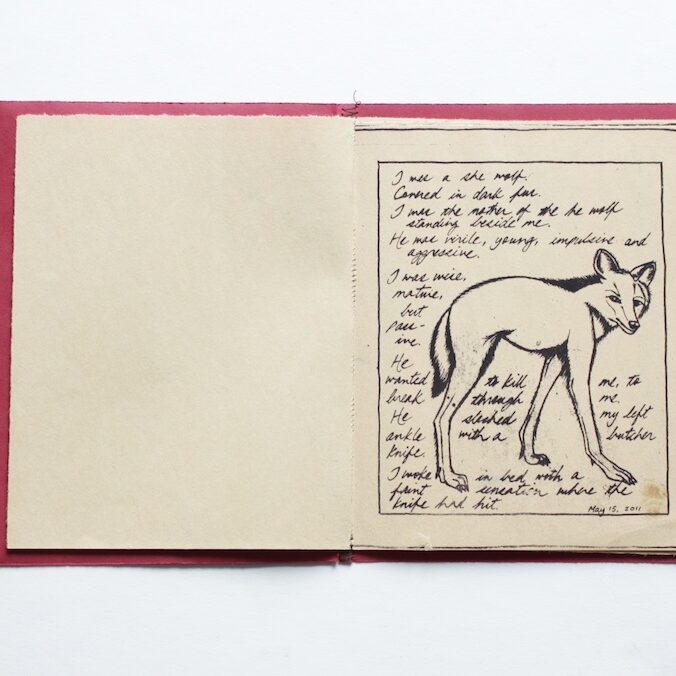 I was a she wolf.
Covered in dark fur.
I was the mother of the he wolf
standing beside me.
He was virile, young, impulsive and
aggressive.
I was wise,
mature,
but
pass-
ive.
He
wanted to kill me, to
break through me.
He slashed my left
ankle with a butcher
knife.
I woke in bed with a
faint sensation where the
knife had hit.
May 15, 2011